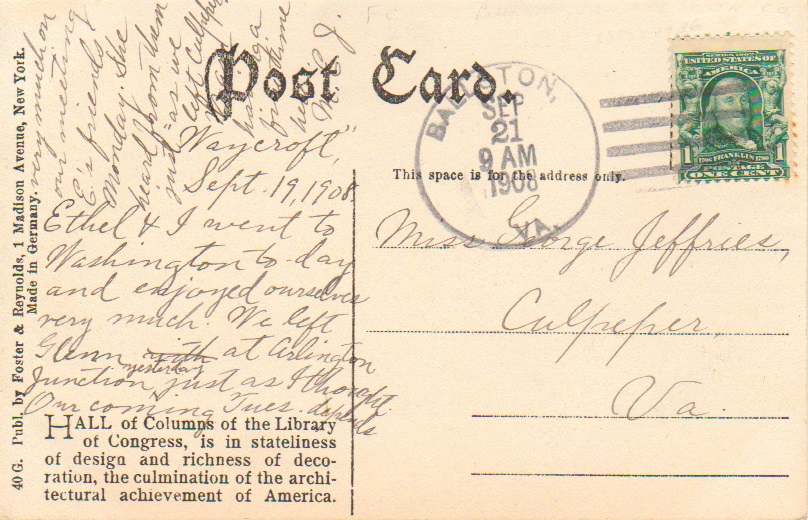 Post Card.
BALLSTON,
SEP
21
9 AM
1908
VA.
SERIES 1902
UNITED STATES OF
AMERICA
1 1706 FRANKLIN 1790 1
POSTAGE
ONE CENT
This space is for the address only.
Miss George Jeffries,
Culpeper,
Va.
"Waycroft,"
Sept. 19, 1908
Ethel & I went to
Washington to-day
and enjoyed ourselves
very much. We left
Glenn with at Arlington
yesterday
Junction just as I thought
Our coming Tues. depends
very much on
our meeting
E's friends
Monday. She
heard from them
just as we
left Culpeper
having a
fine time
M. C. J.
HALL of Columns of the Library
of Congress, is in stateliness
of design and richness of deco-
ration, the culmination of the archi-
tectural achievement of America.
40 G. Publ. by Foster & Reynolds, 1 Madison Avenue, New York.
Made in Germany.